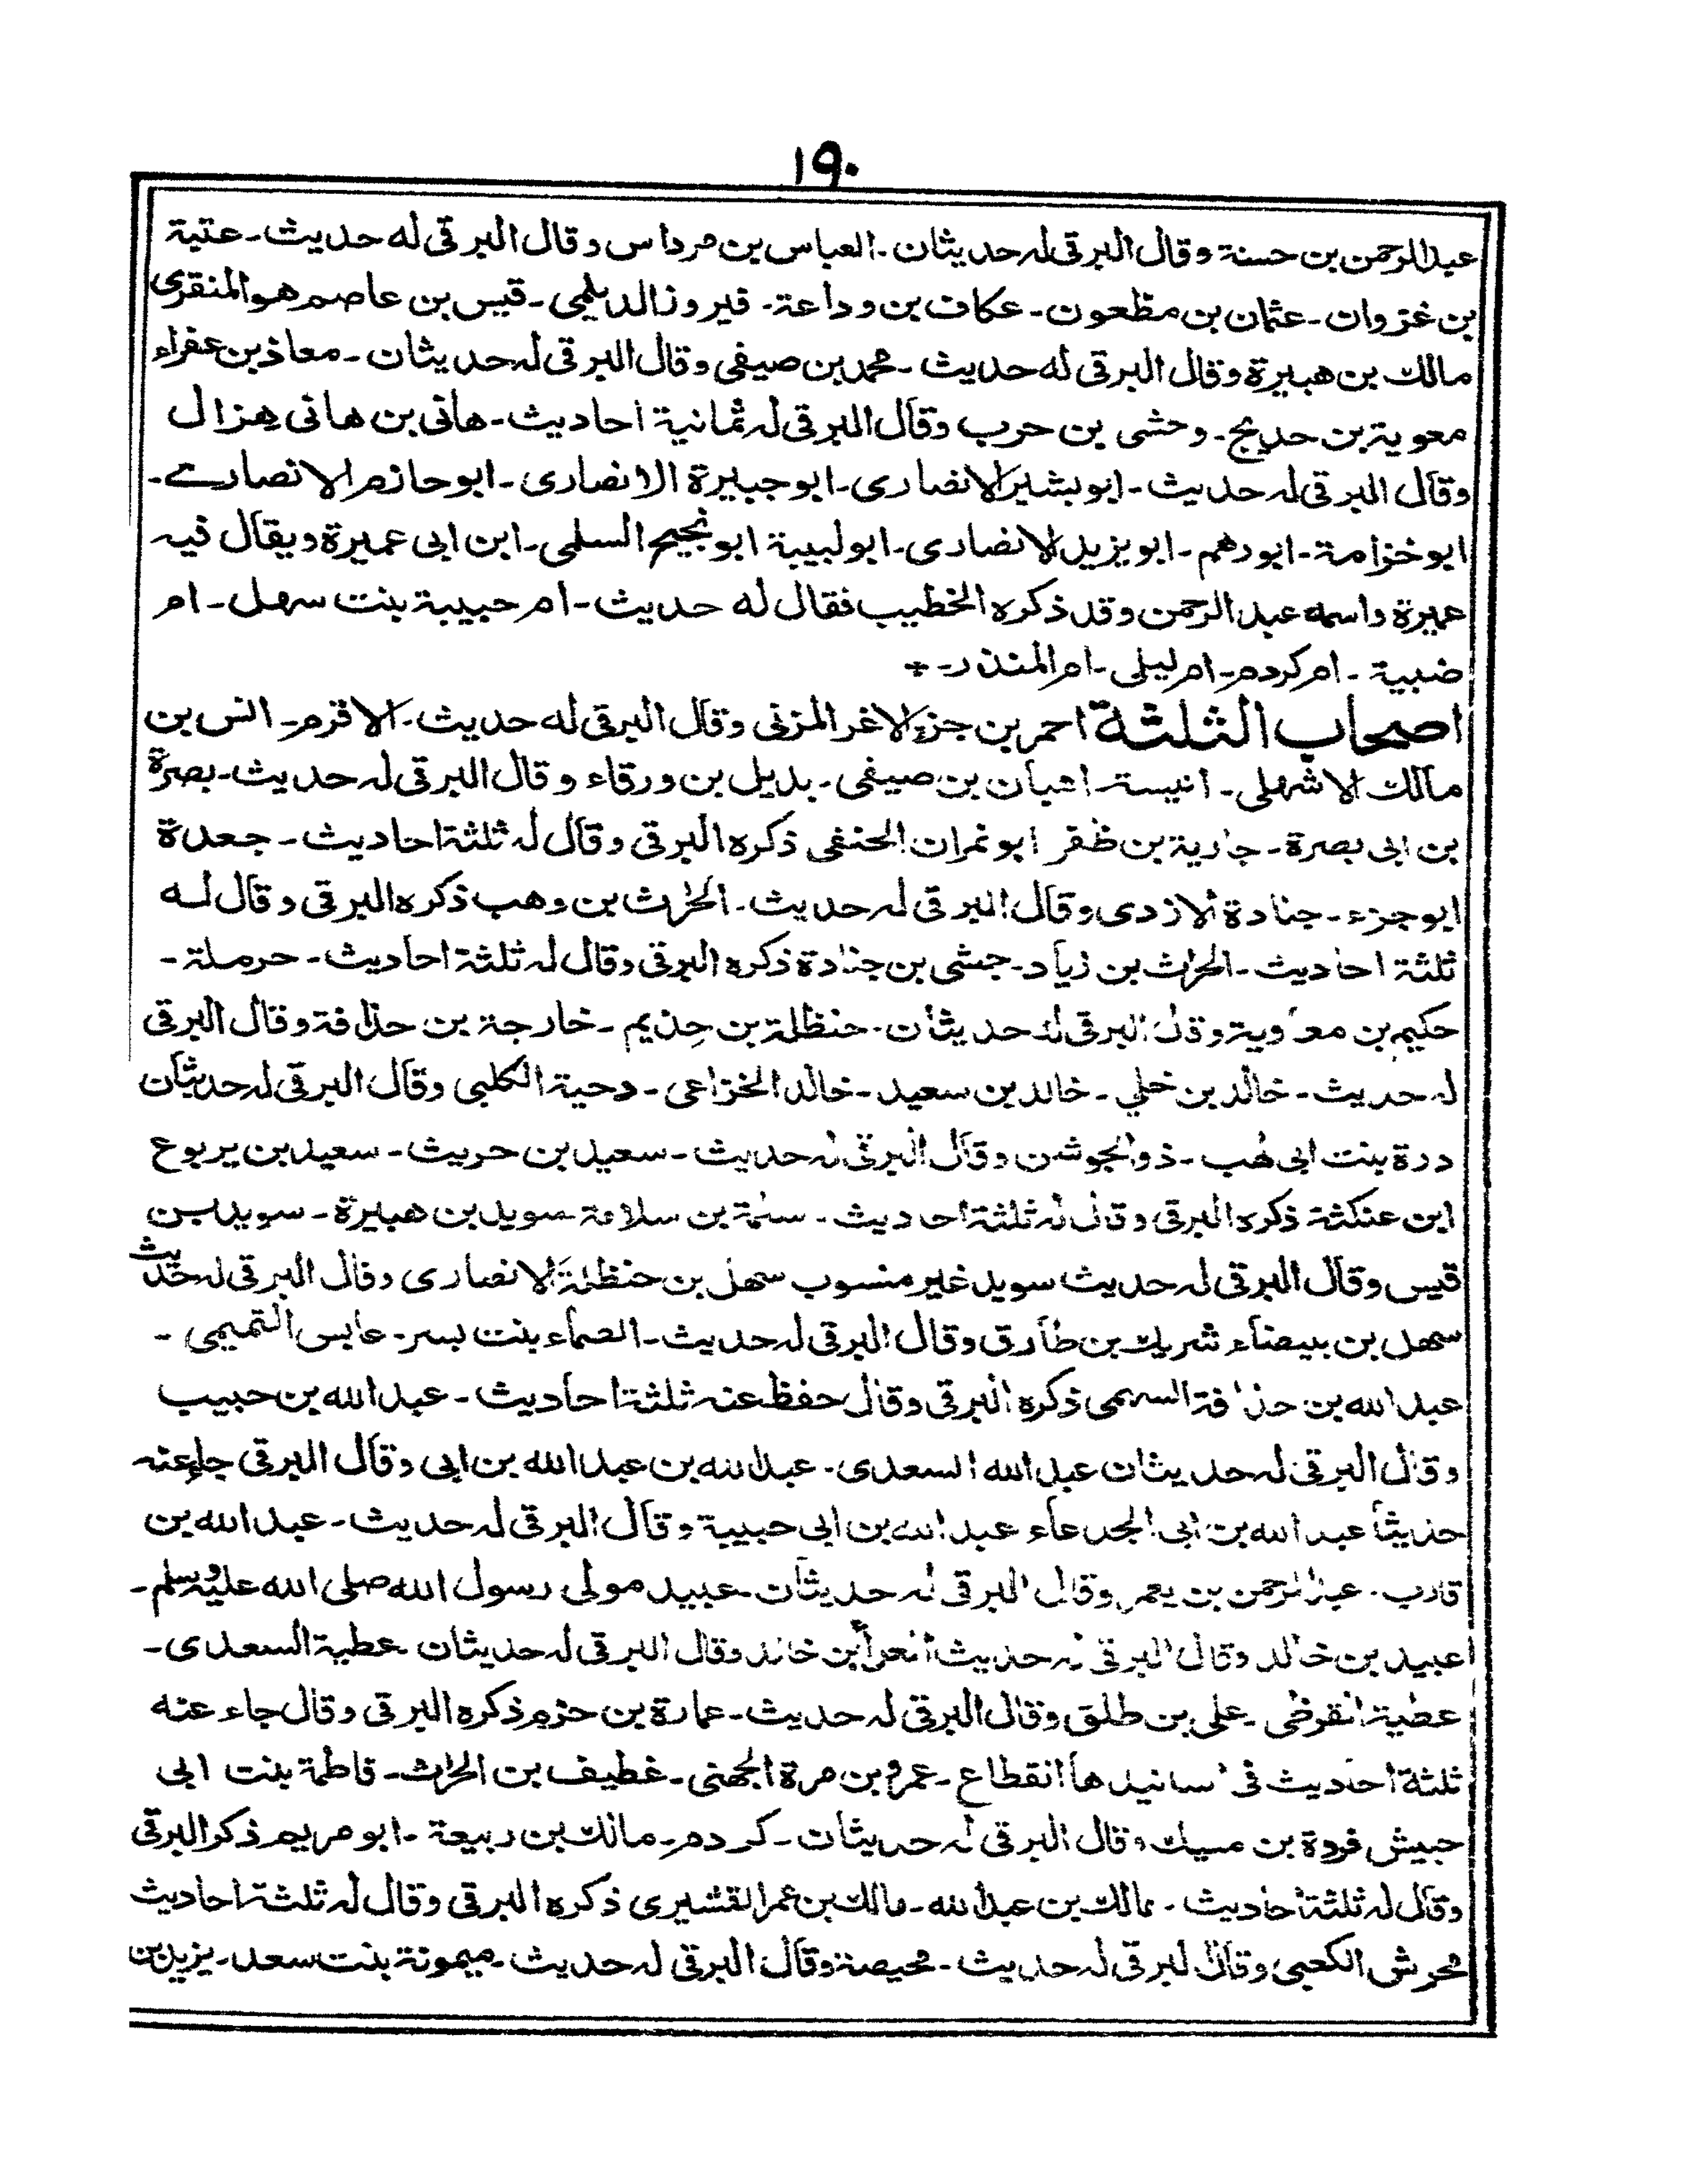 ۱۹۰
عبدالرحمن بن حسنة وقال البرقى له حديثان - العباس بن مرداس وقال البرقى له حديث - عتبة
بن غزوان - عثمان بن مظعون - عكاف بن وداعة - فيروز الديلمى - قيس بن عاصم هو المنقرى
مالك بن هبيرة وقال البرقى له حديث - محمد بن صيفى وقال البرقى له حديثان - معاذ بن عفراء
معوية بن حديج - وحشى بن حرب وقال البرقى له ثمانية احاديث - هانى بن هانى هزال
وقال البرقى له حديث - ابو بشير الانصارى - ابو جبيرة الانصارى - ابو حازم الانصارے -
ابو خزامة - ابو رهم - ابو يزيد الانصارى - ابو لبيبة ابو نجيح السلمى - ابن ابى عميرة ويقال فيه
عميرة واسمه عبد الرحمن وقد ذكره الخطيب فقال له حديث - ام حبيبة بنت سهل - ام
ضبية - ام كردم - ام ليلى - ام المنذر -
اصحاب الثلثة احمر بن جزء الاغر المزنى وقال البرقى له حديث - الاقرم - انس بن
مالك الاشهلى - انيسة - اهبان بن صيفى - بديل بن ورقاء وقال البرقى له حديث - بصرة
بن ابى بصرة - جارية بن ظفر ابو نمران الحنفى ذكره البرقى وقال له ثلثة احاديث - جعدة
ابو جزء - جنادة الازدى وقال البرقى له حديث - الحٰرث بن وهب ذكره البرقى وقال له
ثلثة احاديث - الحٰرث بن زياد - حبشى بن جنادة ذكره البرقى وقال له ثلثة احاديث - حرملة -
حكيم بن معاوية وقال البرقى له حديثان - حنظلة بن حذيم - خارجة بن حذافة وقال البرقى
له حديث - خالد بن خلي - خالد بن سعيد - خالد الخزاعى - دحية الكلبى وقال البرقى له حديثان
درة بنت ابى لهب - ذو الجوشن وقال البرقى له حديث - سعيد بن حريث - سعيد بن يربوع
ابن عنكثة ذكره البرقى وقال له ثلثة احاديث - سلمة بن سلامة - سويد بن هبيرة - سويد بن
قيس وقال البرقى له حديث سويد غير منسوب سهل بن حنظلة الانصارى وقال البرقى له حديث
سهل بن بيضاء شريك بن طارق وقال البرقى له حديث - الصماء بنت بسر - عابس التميمى -
عبد الله بن حذافة السهمى ذكره البرقى وقال حفظ عنه ثلثة احاديث - عبد الله بن حبيب
وقال البرقى له حديثان عبد الله السعدى - عبد الله بن عبد الله بن ابى وقال البرقى جاء عنه
حديثا عبد الله بن ابى الجدعاء عبد الله بن ابى حبيبة وقال البرقى له حديث - عبد الله بن
قارب - عبد الرحمن بن يعمر وقال البرقى له حديثان - عبيد مولى رسول الله صلى الله عليه وسلم -
عبيد بن خالد وقال البرقى له حديث العداء بن خالد وقال البرقى له حديثان عطية السعدى -
عطية القرظى - على بن طلق وقال البرقى له حديث - عمارة بن حزم ذكره البرقى وقال جاء عنه
ثلثة احاديث فى اسانيدها انقطاع - عمرو بن مرة الجهنى - غطيف بن الحٰرث - فاطمة بنت ابى
حبيش فروة بن مسيك وقال البرقى له حديثان - كردم - مالك بن ربيعة - ابو مريم ذكر البرقى
وقال له ثلثة احاديث - مالك بن عبد الله - مالك بن عمر القشيرى ذكره البرقى وقال له ثلثة احاديث
محرش الكعبى وقال البرقى له حديث - محيصة وقال البرقى له حديث - ميمونة بنت سعد - يزيد بن